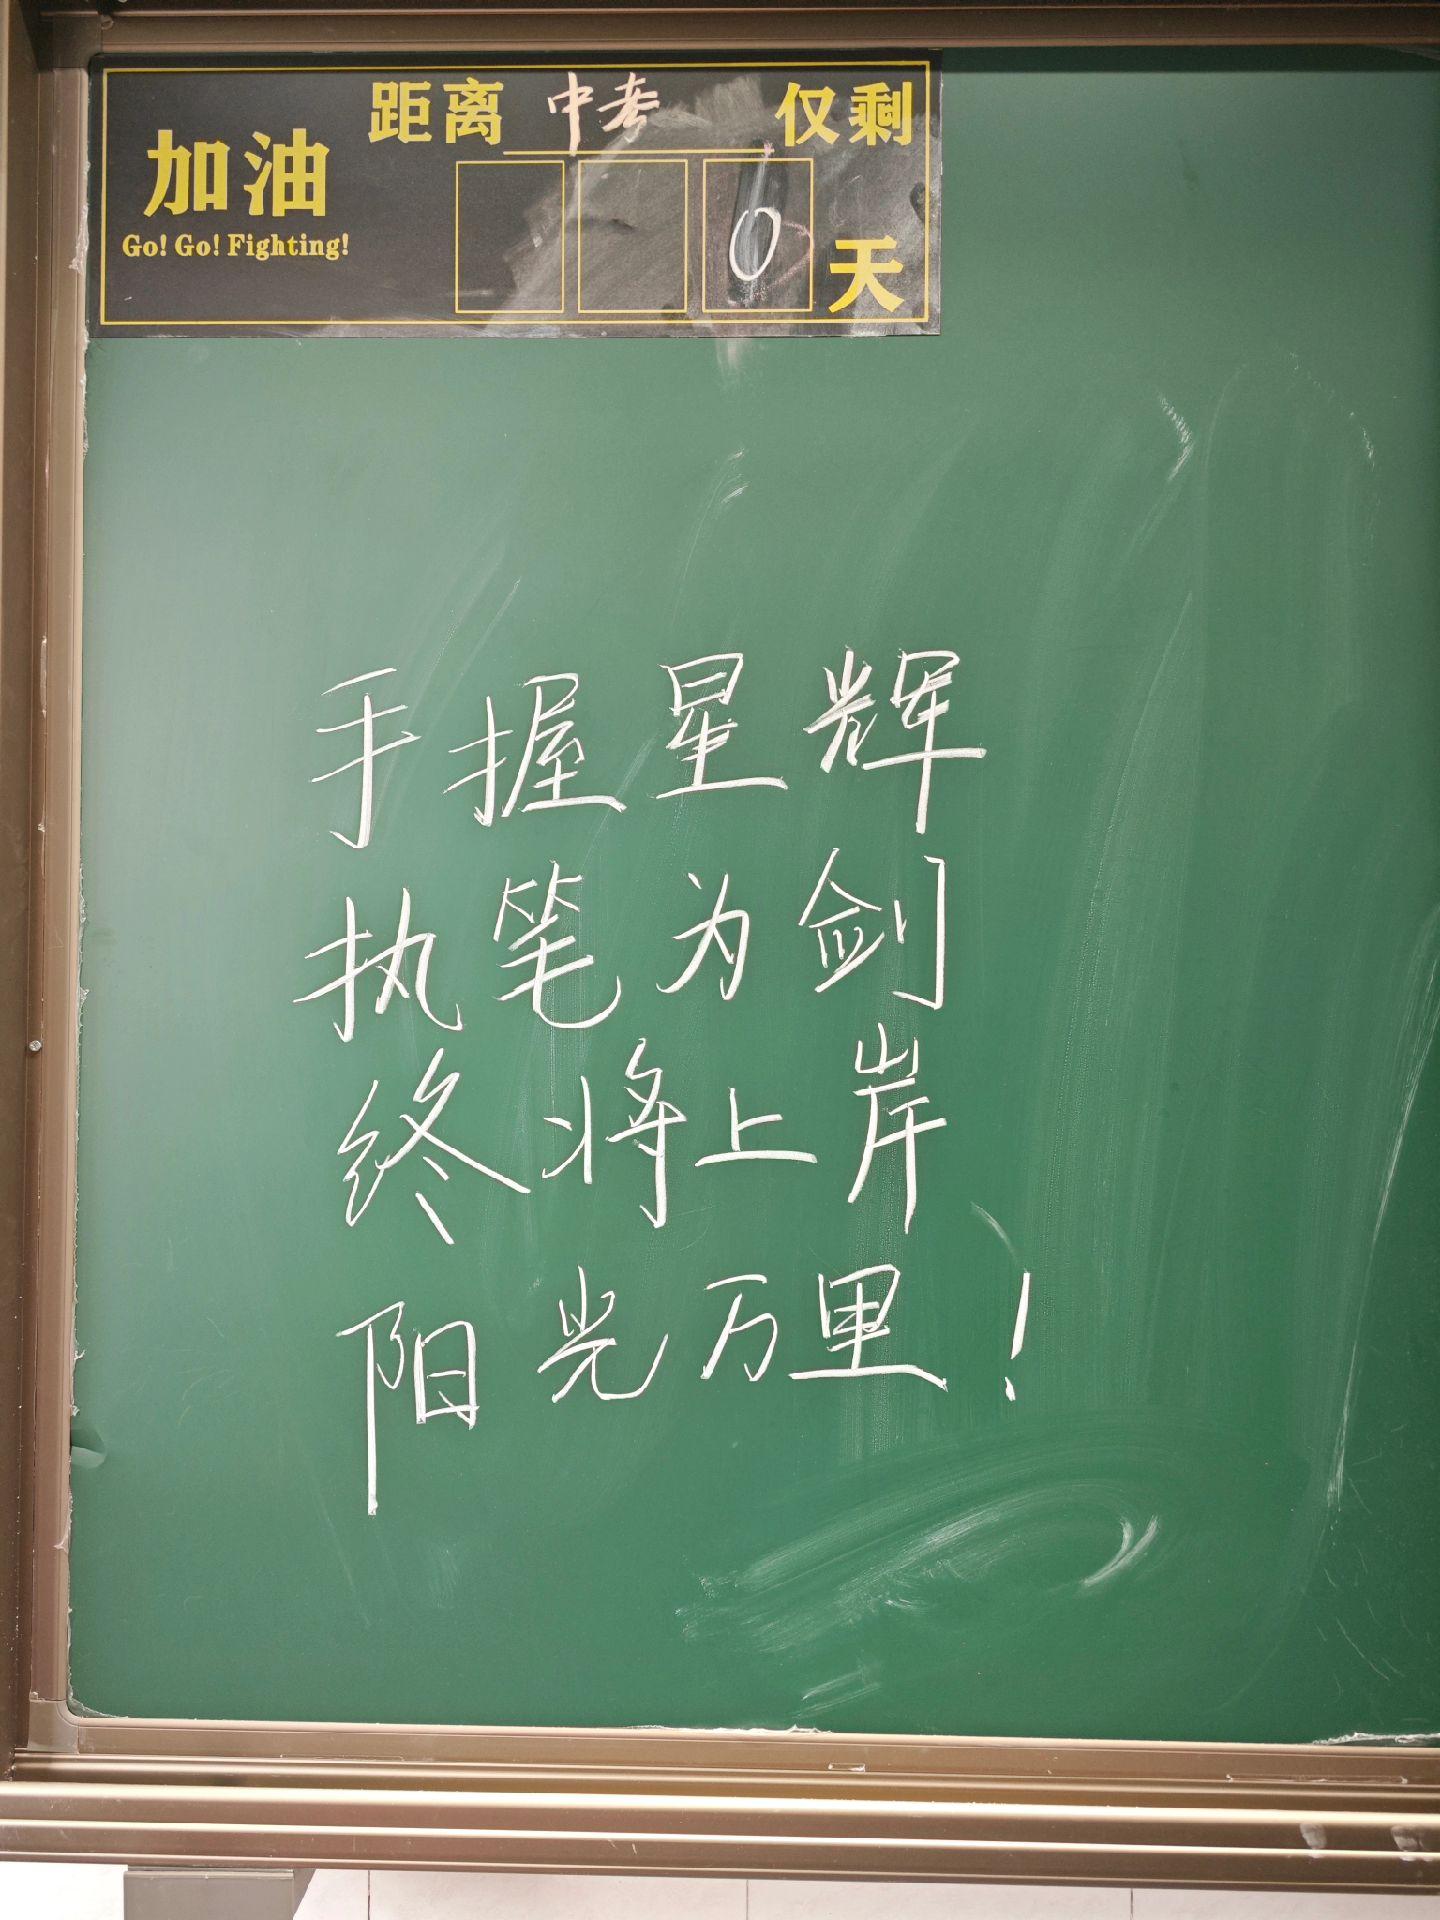 距离 中考 仅剩
加油
Go! Go! Fighting!
0 天
手握星辉
执笔为剑
终将上岸
阳光万里！